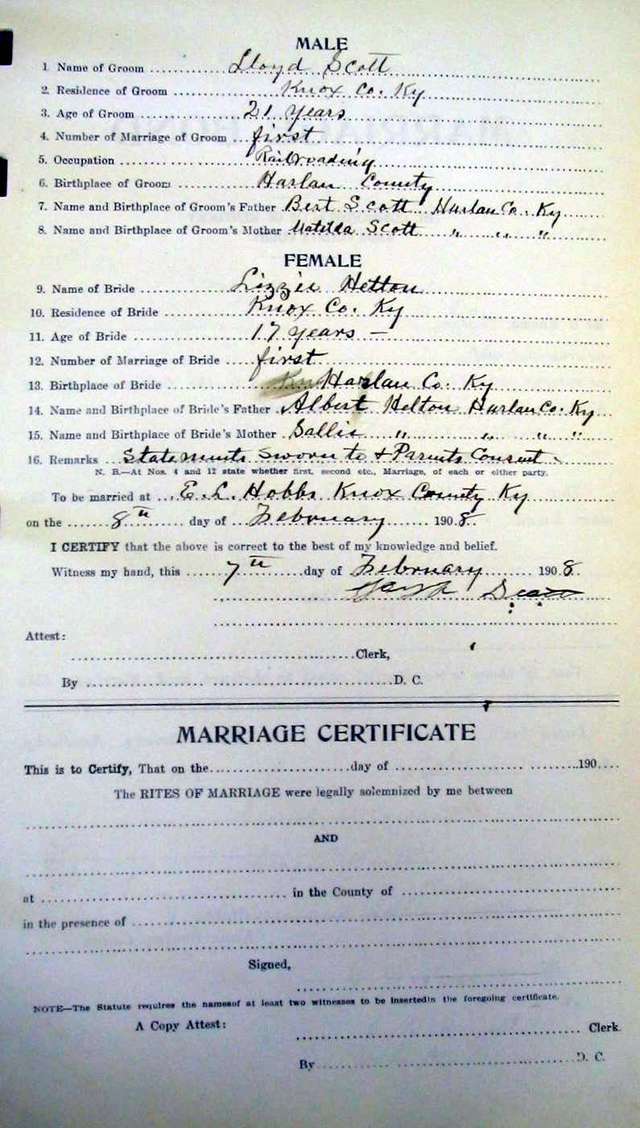 MALE
1. Name of Groom Lloyd Scott
2. Residence of Groom Knox Co. Ky
3. Age of Groom 21 years
4. Number of Marriage of Groom first
5. Occupation Railroading
6. Birthplace of Groom Harlan County
7. Name and Birthplace of Groom's Father Bert Scott Harlan Co. Ky
8. Name and Birthplace of Groom's Mother Matilda Scott " " "
FEMALE
9. Name of Bride Lizzie Helton
10. Residence of Bride Knox Co. Ky
11. Age of Bride 17 years —
12. Number of Marriage of Bride first
13. Birthplace of Bride Harlan Co. Ky
14. Name and Birthplace of Bride's Father Albert Helton Harlan Co. Ky
15. Name and Birthplace of Bride's Mother Sallie " " " "
16. Remarks Statements Sworn to & Parents Consent.
N. B.—At Nos. 4 and 12 state whether first, second etc., Marriage, of each or either party.
To be married at E. L. Hobbs Knox County Ky
on the 8th day of February 1908.
I CERTIFY that the above is correct to the best of my knowledge and belief.
Witness my hand, this 7th day of February 1908
Attest:
Clerk,
By D. C.
MARRIAGE CERTIFICATE
This is to Certify, That on the day of 190
The RITES OF MARRIAGE were legally solemnized by me between
AND
at in the County of
in the presence of
Signed,
NOTE—The Statute requires the namesof at least two witnesses to be insertedin the foregoing certificate.
A Copy Attest: Clerk
By D. C.